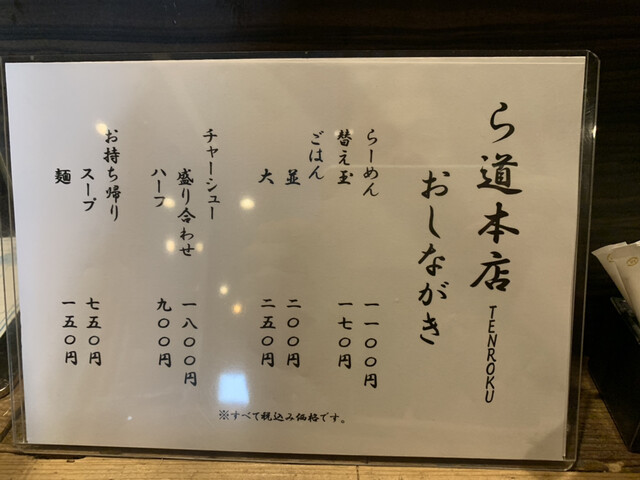 ら道本店 TENROKU
おしながき
らーめん 一一〇〇円
替え玉 一七〇円
ごはん
並 二〇〇円
大 二五〇円
チャーシュー
盛り合わせ 一八〇〇円
ハーフ 九〇〇円
お持ち帰り
スープ 七五〇円
麺 一五〇円
※すべて税込み価格です。